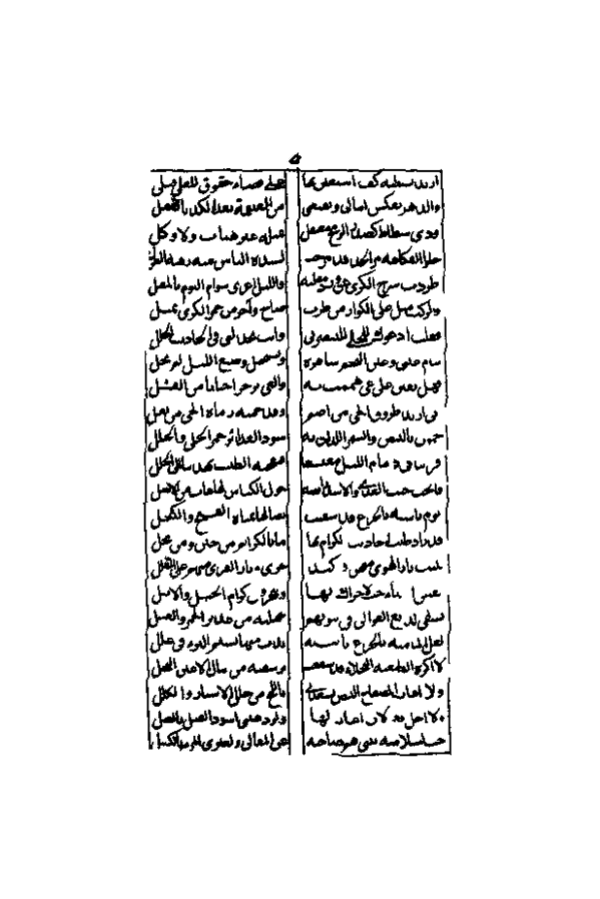 أريد بسطة كف استعين بها على قضاء حقوق للعلى قبلي
والدهر يعكس امالي ويقنعني من الغنيمة بعد الكد بالقفل
وذي شطاط كصدر الرمح معتقل بمثله غير هياب ولا وكل
حلو الفكاهة مر الجد قد مزجت بشدة الباس منه رقة الغزل
طردت سرح الكرى عن ورد مقلته والليل اغرى سوام النوم بالمقل
والركب ميل على الاكوار من طرب صاح وآخر من خمر الكرى ثمل
فقلت ادعوك للجلى لتنصرني وانت تخذلني في الحادث الجلل
تنام عيني وعين النجم ساهرة وتستحيل وصبغ الليل لم يحل
فهل تعين على غي هممت به والغي يزجر احيانا من الفشل
اني اريد طروق الحي من اضم وقد حمته رماة الحي من ثعل
يحمون بالبيض والسمر اللدان به سود الغدائر حمر الحلي والحلل
فسر بنا في ذمام الليل معتسفا فنفحة الطيب تهدينا الى الحلل
فالحب حيث العدى والاسد رابضة حول الكناس لها غاب من الاسل
نؤم ناشئة بالجزع قد سقيت نصالها بمياه الغنج والكحل
قد زاد طيب احاديث الكرام بها ما بالكرائم من جبن ومن بخل
تبيت نار الهوى منهن في كبد حرى ونار القرى منهم على القلل
يقتلن انضاء حب لا حراك بها وينحرون كرام الخيل والابل
يشفى لديغ العوالي في بيوتهم بنهلة من غدير الخمر والعسل
لعل المامة بالجزع ثانية يدب منها نسيم البرء في علل
لا اكره الطعنة النجلاء قد شفعت برشقة من نبال الاعين النجل
ولا اهاب الصفاح البيض تسعدني باللمح من خلل الاستار والكلل
ولا اخل بغزلان اغازلها ولو دهتني اسود الغيل بالغيل
حب السلامة يثني هم صاحبه عن المعالي ويغري المرء بالكسل